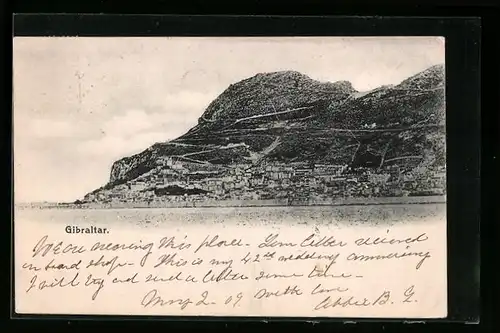 Gibraltar.
We are nearing this place. Gem letter recieved
on board ship. This is my 42nd wedding anniversary
I will try and send a letter some time.
May 2 09 with love Abbie B. G.